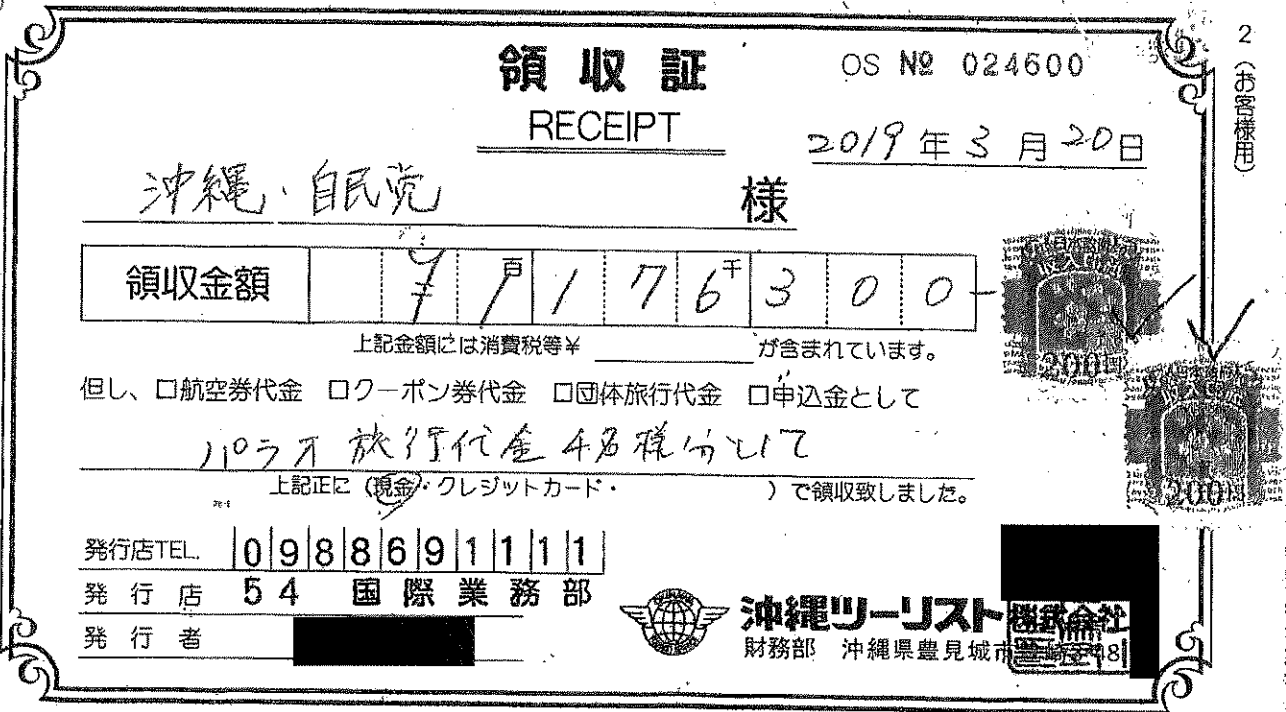 2（お客様用）
領収証
OS № 024600
RECEIPT
2019年3月20日
沖縄・自民党 様
領収金額 ¥1百176千300-
上記金額には消費税等¥ が含まれています。
但し、□航空券代金 □クーポン券代金 □団体旅行代金 □申込金として
パラオ旅行代金4名様分として
上記正に（現金・クレジットカード・ ）で領収致しました。
発行店TEL. 0988691111
発行店 54 国際業務部
発行者
沖縄ツーリスト株式会社
財務部 沖縄県豊見城市
200円
200円